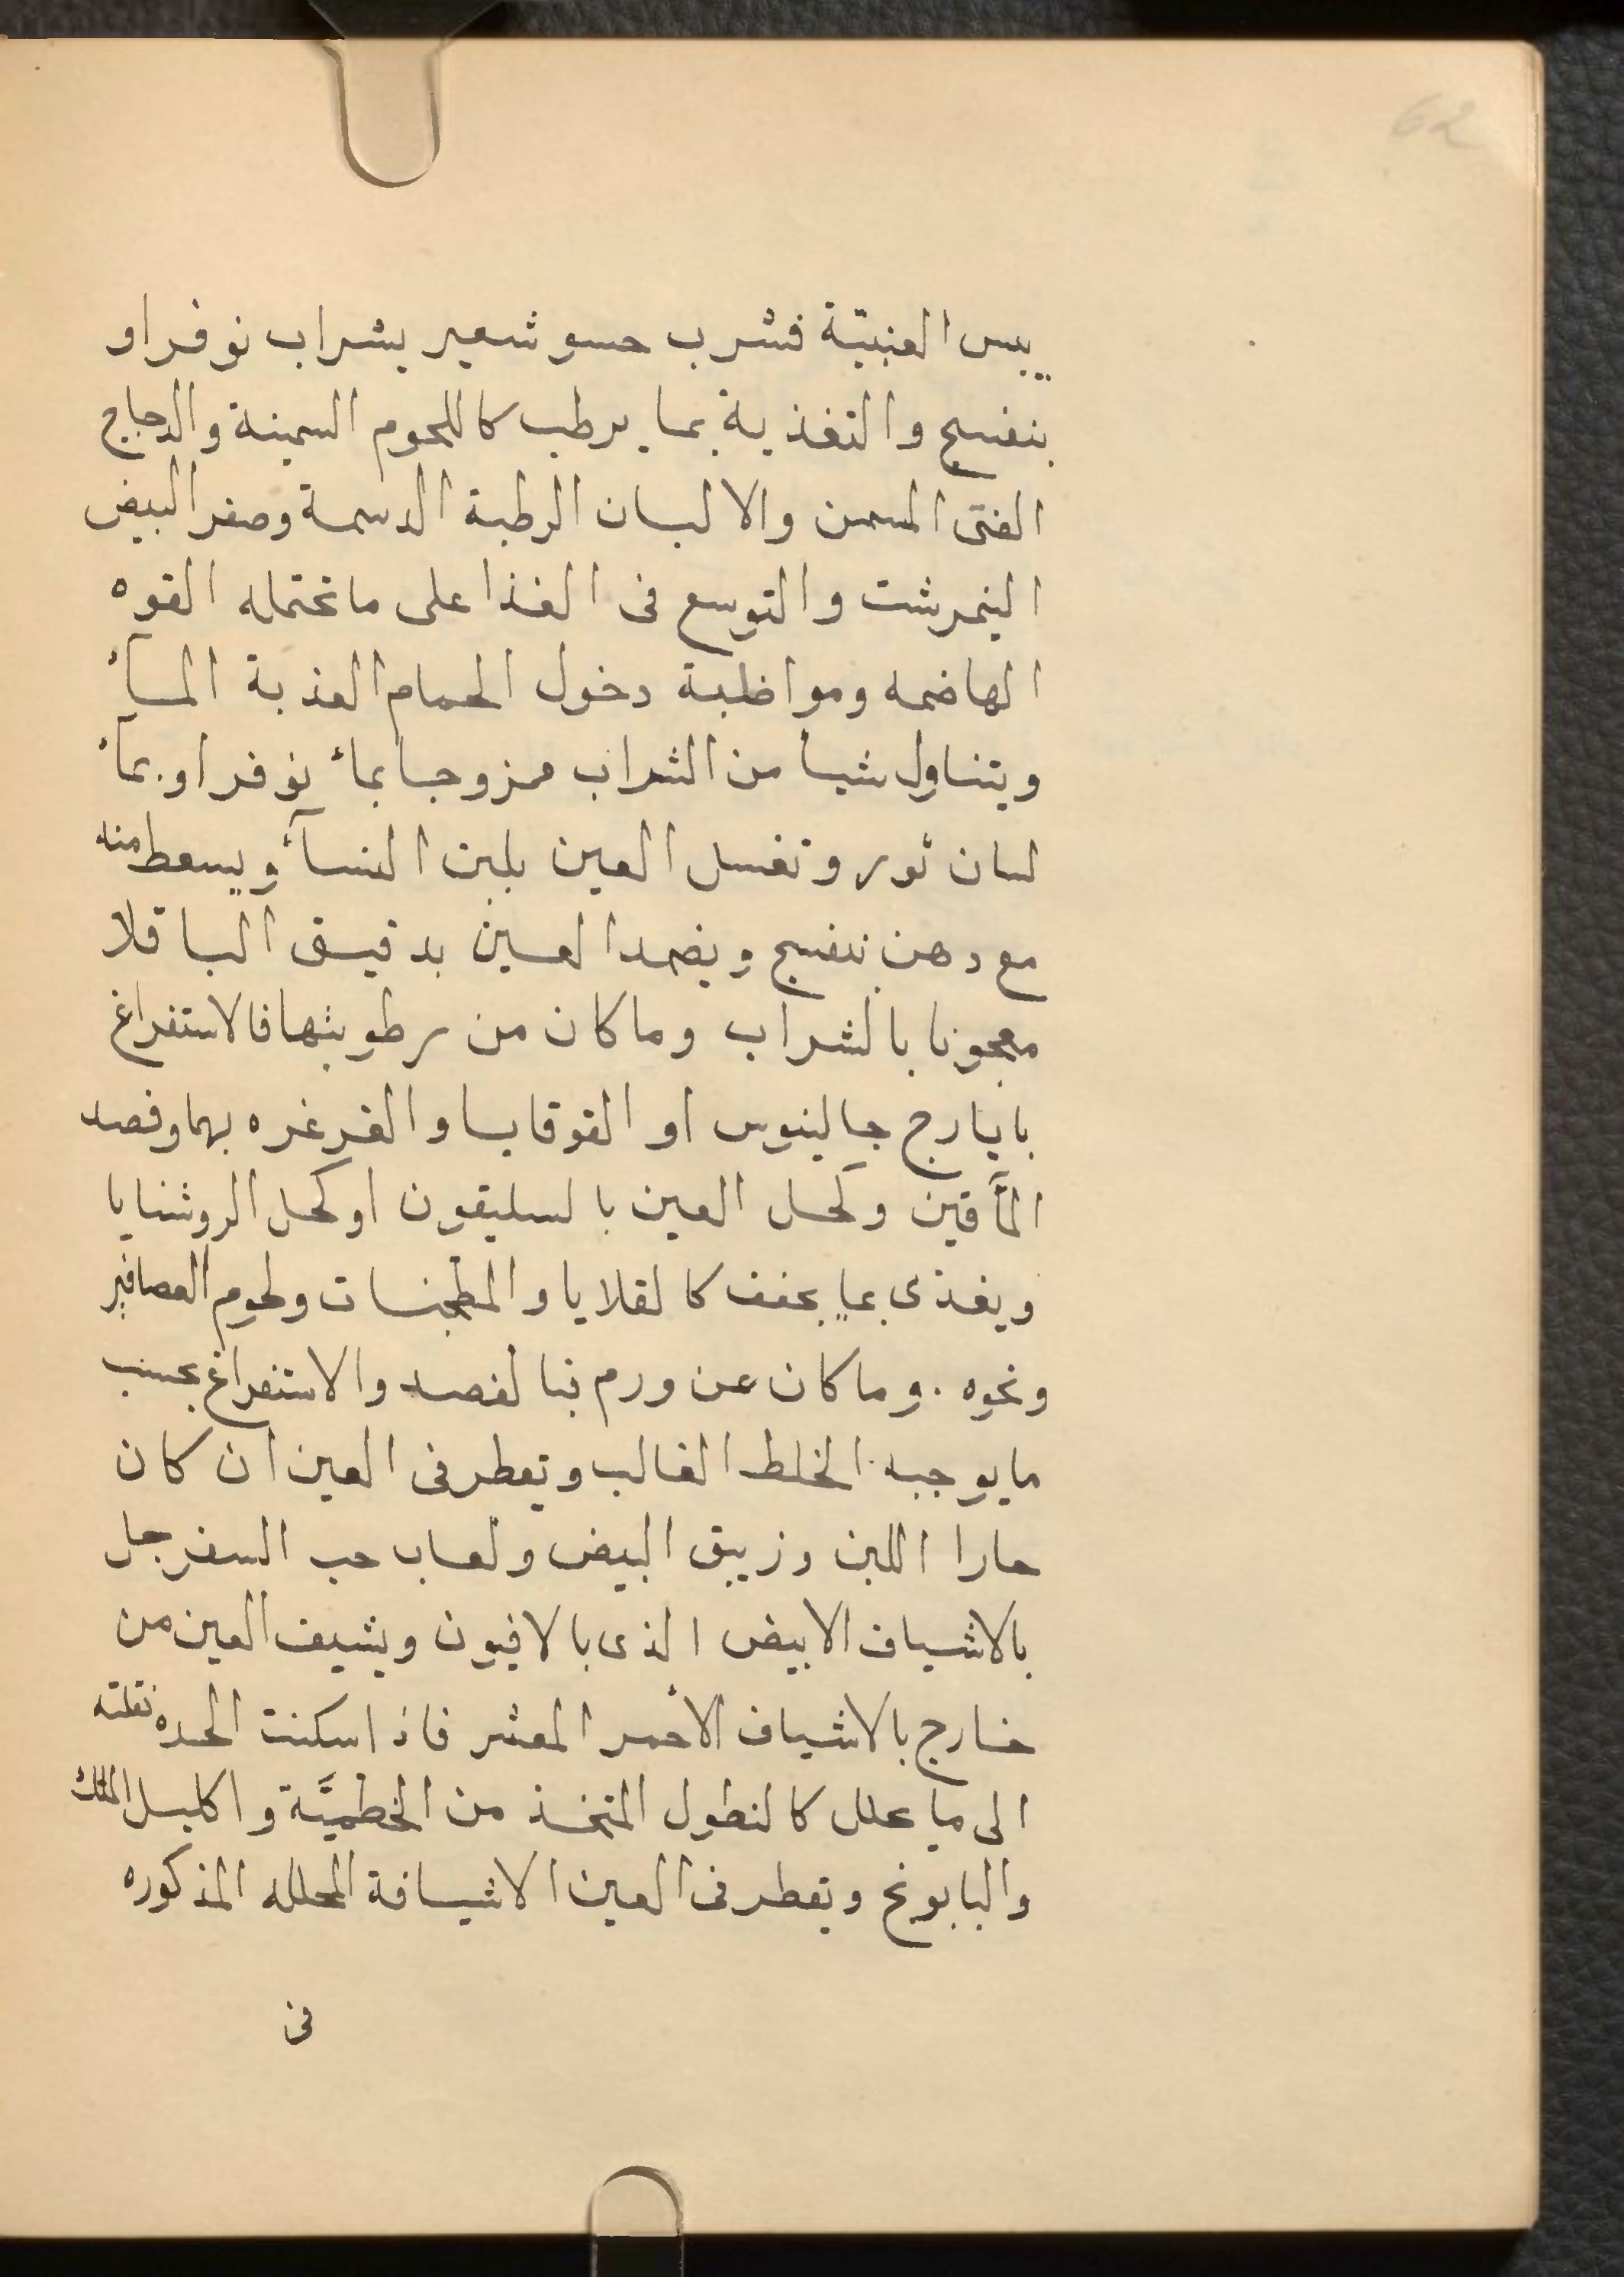 62
يبس العنبيّة فشرب حسو شعير بشراب نوفر او
بنفسج والتغذية بما يرطب كاللحوم السمينة والدجاج
الفتى المسمن والالبان الرطبة الدسمة وصفر البيض
النيمرشت والتوسع فى الغذا على ما تحتمله القوه
الهاضمه ومواظبة دخول الحمام العذبة المآء
ويتناول شيا من الشراب ممزوجا بمآء نوفر او بمآء
لسان ثور وتغسل العين بلبن النسآء ويسعط منه
مع دهن بنفسج ويضمد العين بدقيق الباقلا
معجونا بالشراب وما كان من رطوبتها فالاستفراغ
بايارج جالينوس او القوقايا والغرغره بهما وفصد
المأقين وكحل العين بالسليقون او كحل الروشنايا
ويغذى بما يجفف كالقلايا والمطجنات ولحوم العصافير
ونحوه . وما كان عن ورم فبالفصد والاستفراغ بحسب
ما يوجبه الخلط الغالب وتقطر فى العين ان كان
حارا اللبن وزيبق البيض ولعاب حب السفرجل
بالاشياف الابيض الذى بالافيون ويشيف العين من
خارج بالاشياف الاحمر المعشر فاذا سكنت الحده نقلته
الى ما يحلل كالنطول المتخذ من الخطميَّة واكليل الملك
والبابونج وتقطر فى العين الاشيافة المحلله المذكوره
فى